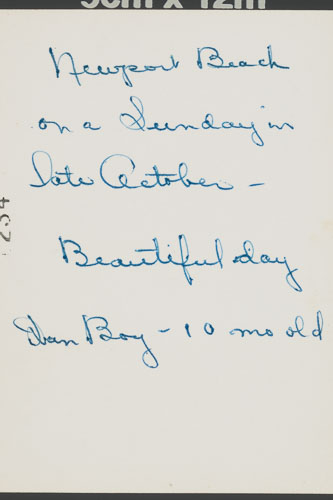 5cm x 12m
Newport Beach
on a Sunday in
late October -
Beautiful day
Boy - 10 mo old
234